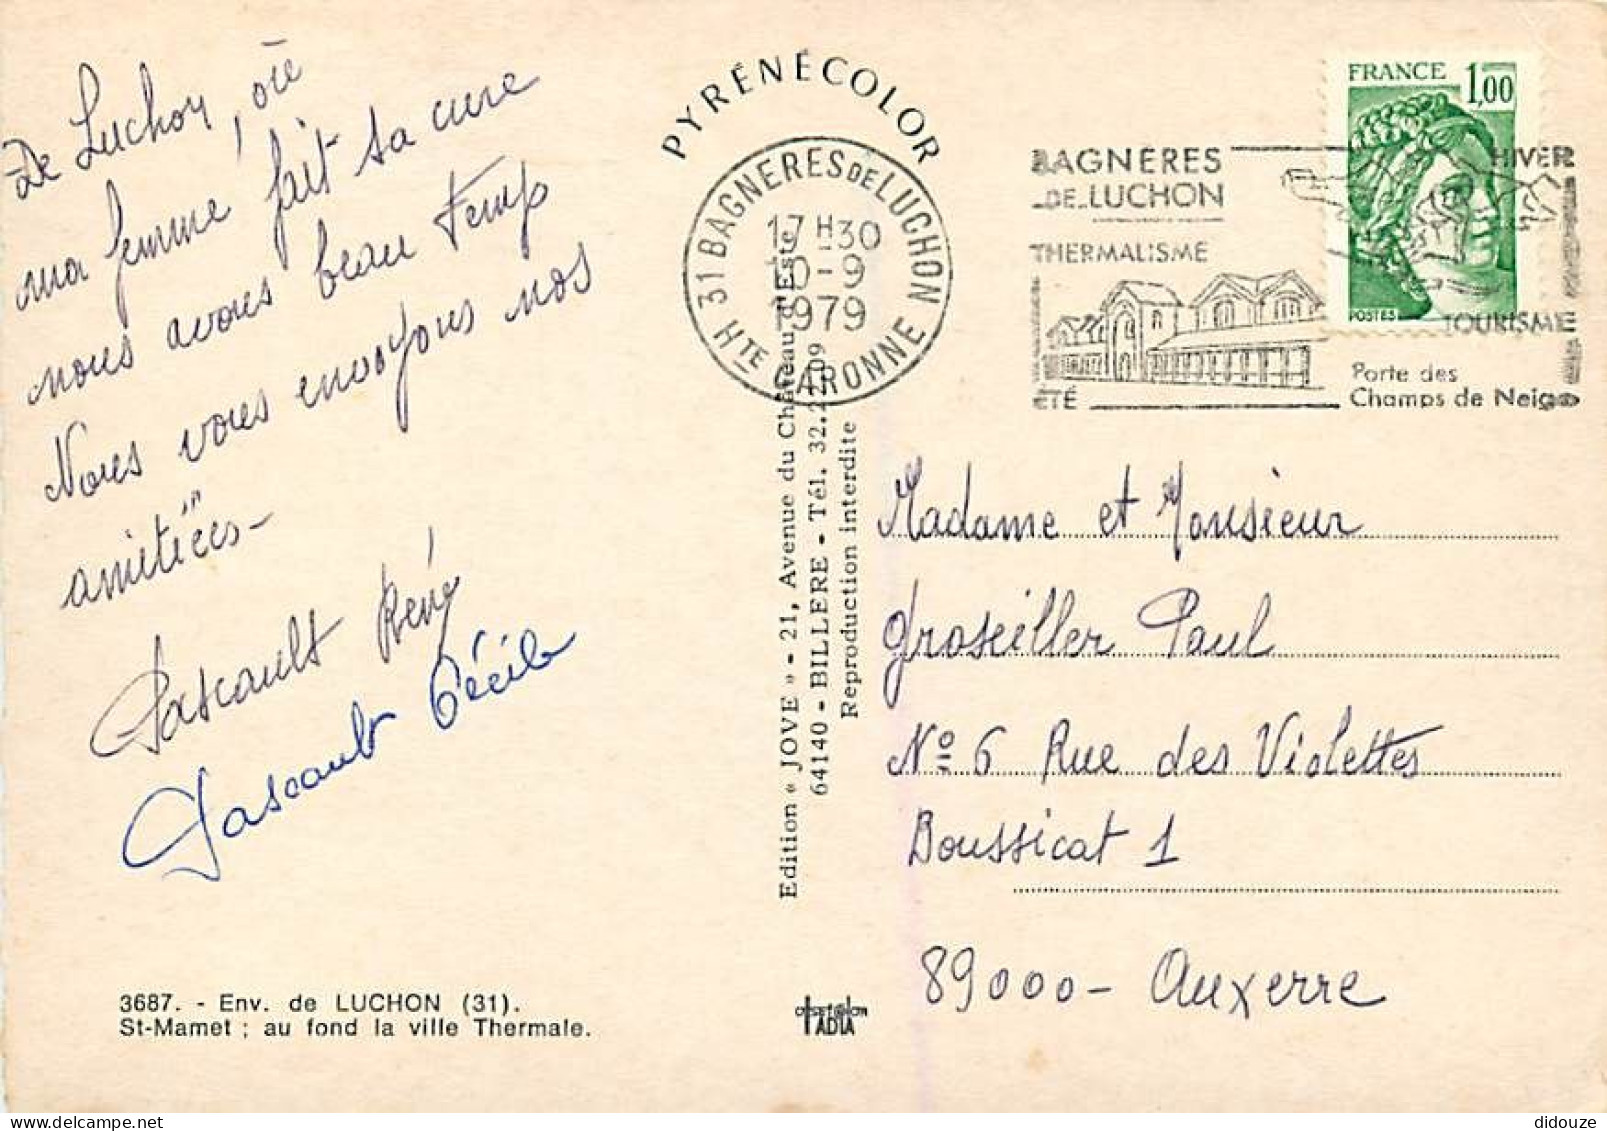 De Luchon, où
ma femme fait sa cure
nous avons beau temps
Nous vous envoyons nos
amitiées -
Pascault René
Pascault Cécile
3687. - Env. de LUCHON (31).
St-Mamet ; au fond la ville Thermale.
PYRÉNÉCOLOR
31 BAGNERES DE LUCHON
17H30
10-9
1979
HTE GARONNE
Edition « JOVE » - 21, Avenue du Château d'Este
64140 - BILLERE - Tél. 32.22.09
Reproduction interdite
BAGNERES
DE LUCHON
THERMALISME
ETÉ
HIVER
TOURISME
Porte des
Champs de Neige
FRANCE 1,00
POSTES
Madame et Monsieur
Groseiller Paul
N° 6 Rue des Violettes
Boussicat 1
89000 - Auxerre
didouze